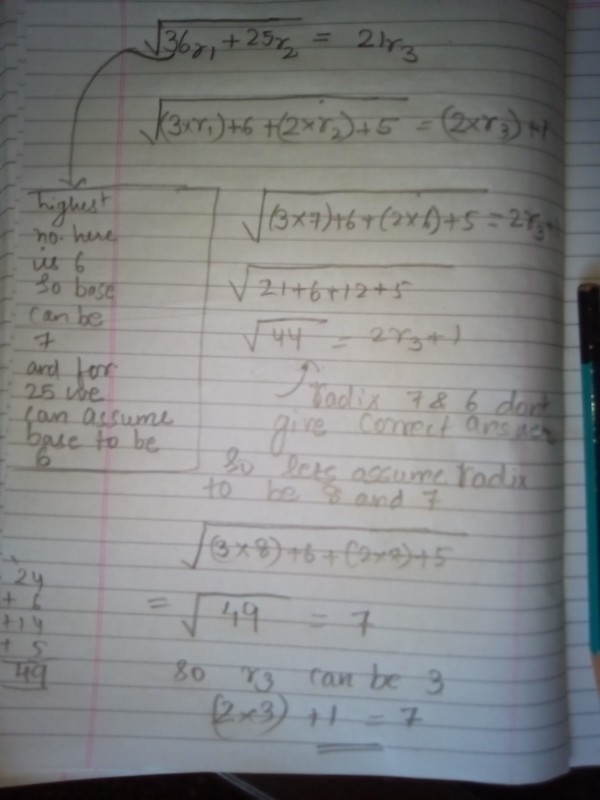 √36r₁ + 25r₂ = 21r₃
√(3×r₁)+6+(2×r₂)+5 = (2×r₃)+1
highest
no. here
is 6
So base
can be
7
and for
25 we
can assume
base to be
6
√(3×7)+6+(2×6)+5 = 2r₃+
√21+6+12+5
√44 = 2r₃+1
radix 7 & 6 dont
give correct answer
So lets assume radix
to be 8 and 7
√(3×8)+6+(2×7)+5
24
+ 6
+14
+ 5
49
= √49 = 7
So r₃ can be 3
(2×3) +1 = 7